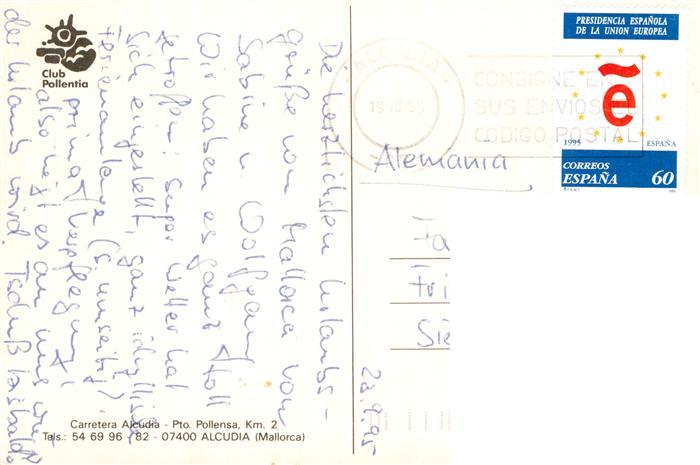 Club
Pollentia
Die herzlichsten Urlaubs-
grüße von Mallorca von
Sabine u. Wolfgang
Wir haben es ganz toll
getroffen: super Wetter hat
sich eingestellt, ganz idyllische
Ferienanlage (s. umseitig)
prima Verpflegung!
also liegt es an uns wie
der Urlaub wird. Tschüß bis bald
Carretera Alcudia - Pto. Pollensa, Km. 2
Tels.: 54 69 96 - 82 - 07400 ALCUDIA (Mallorca)
28.9.95
- ALCUDIA -
CONSIGNE EN
SUS ENVIOS EL
CODIGO POSTAL
PRESIDENCIA ESPAÑOLA
DE LA UNION EUROPEA
ẽ
1995 ESPAÑA
CORREOS
ESPAÑA 60
Alemania
Fa
Fri
Sie